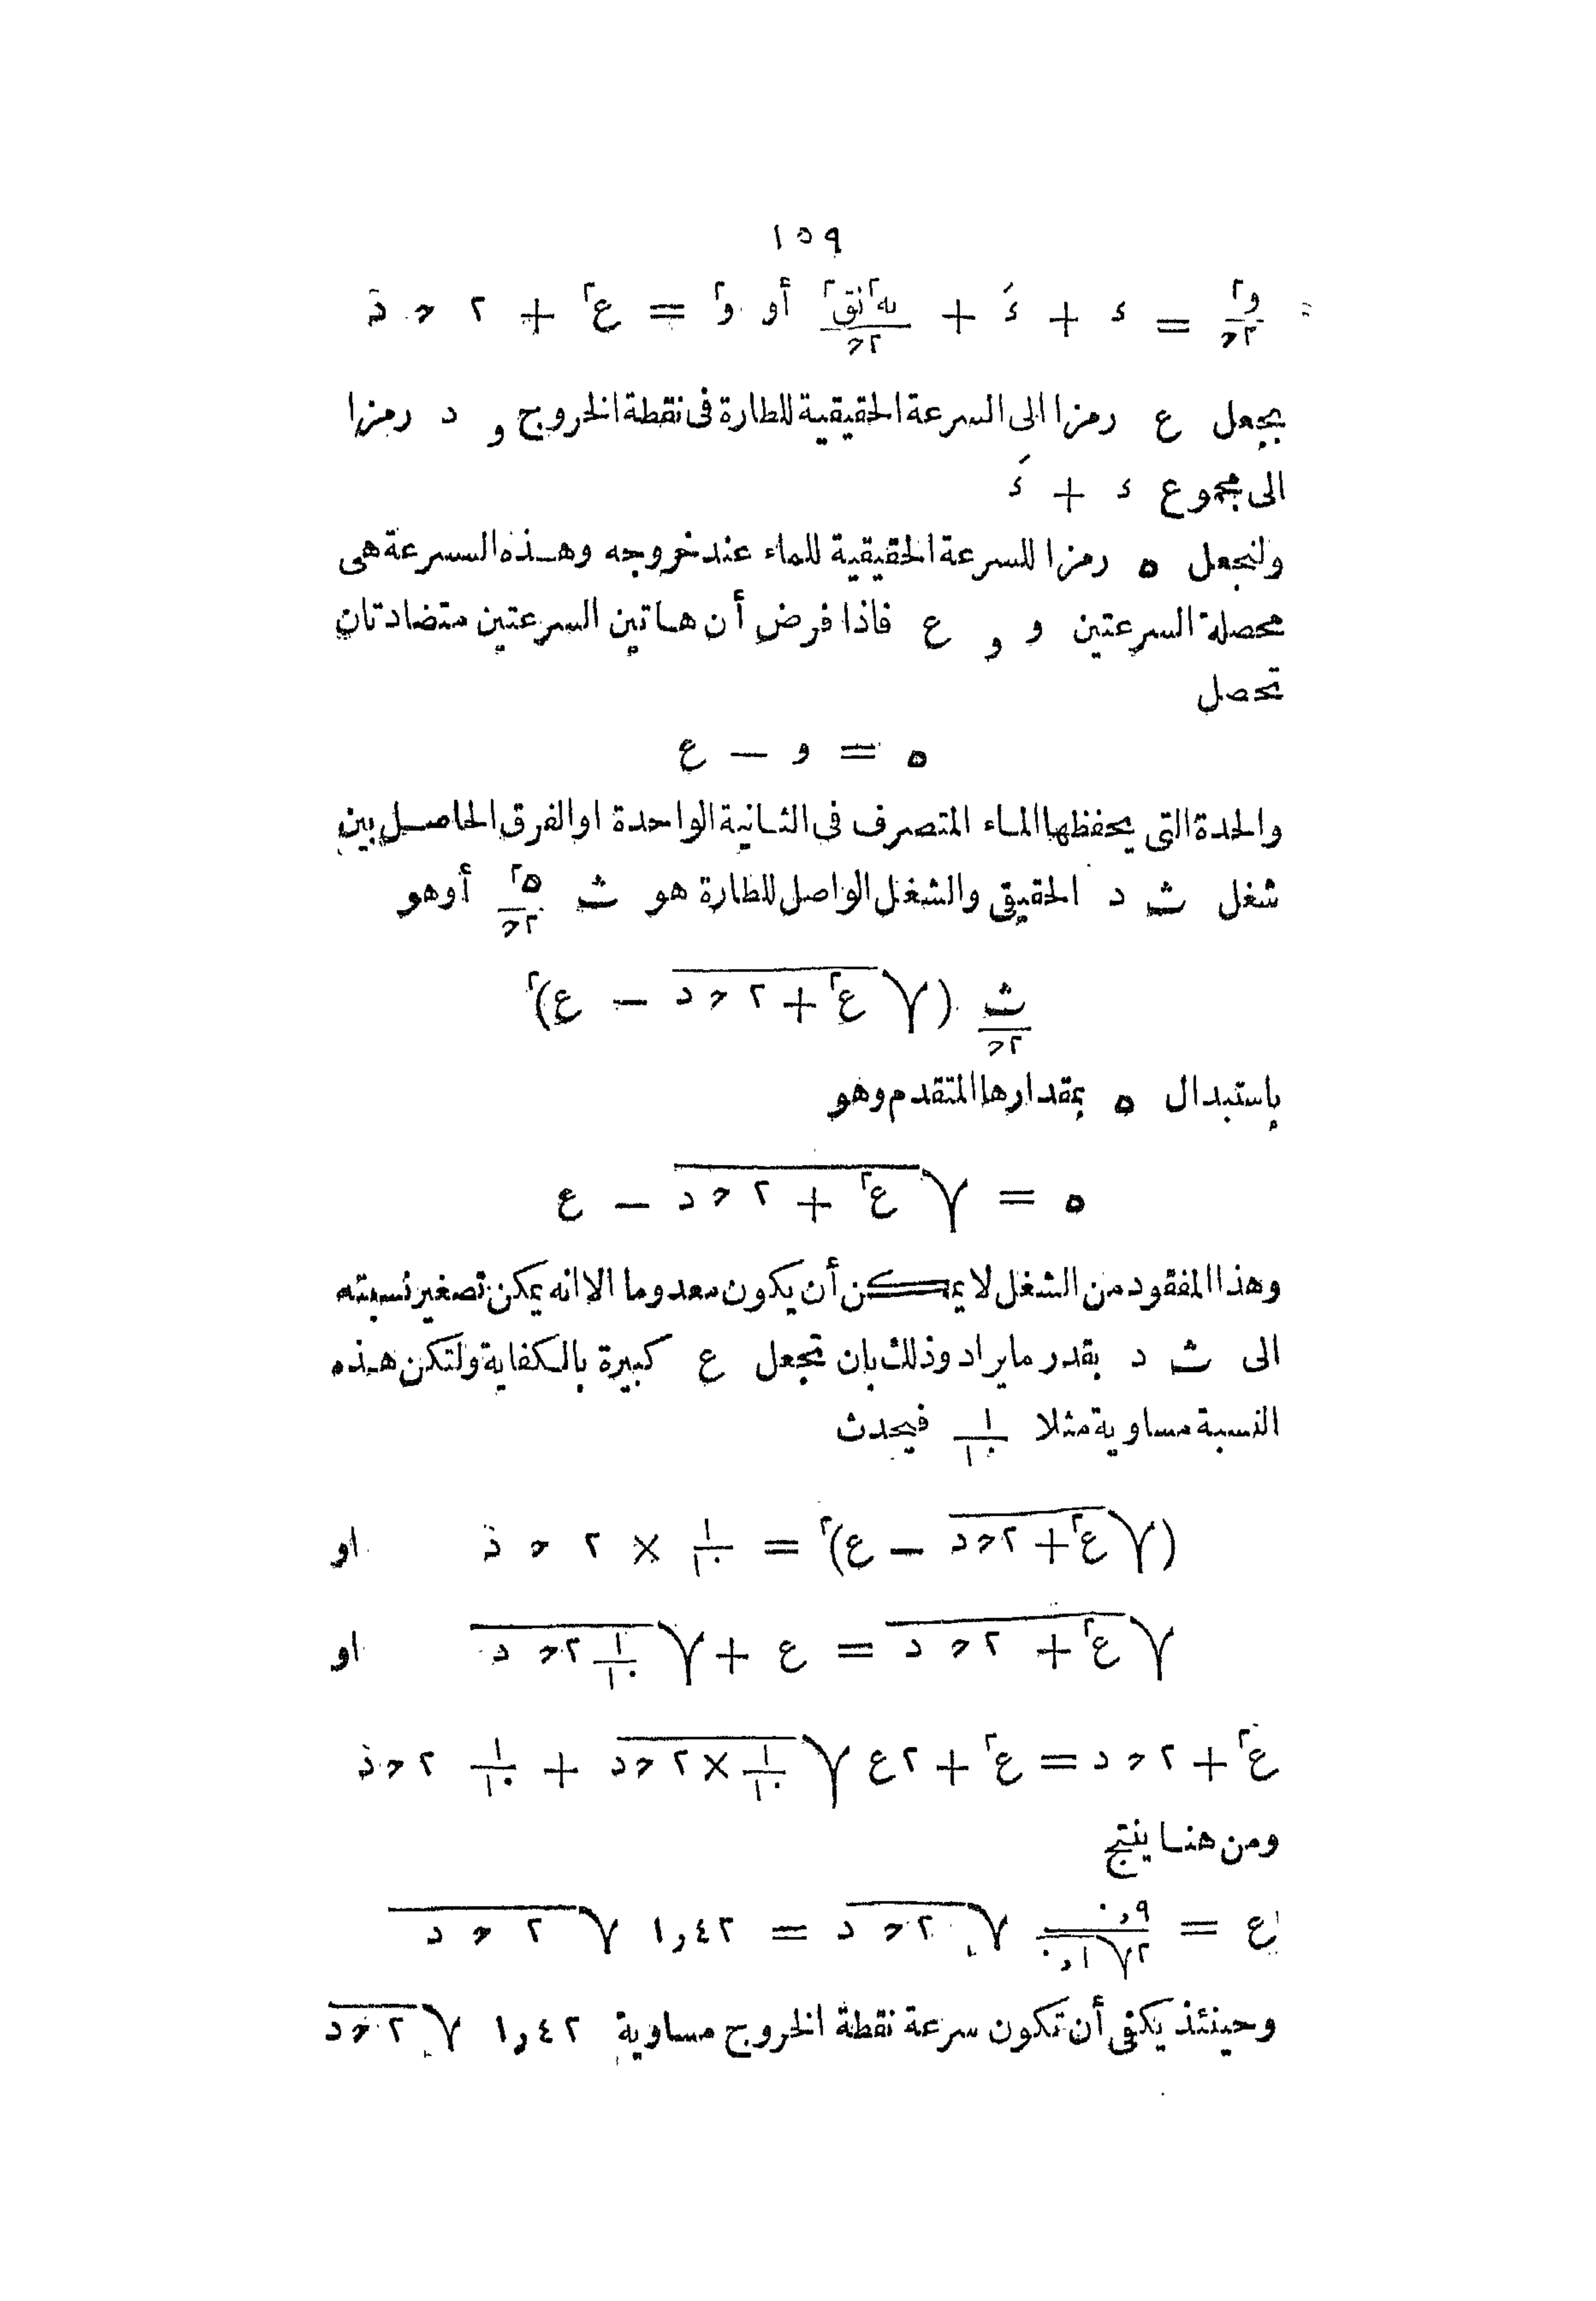 ١٥٩
و٢/٢ح = ء + ءَ + به٢نق٢/٢ح أو و٢ = ع٢ + ٢ ح د
بجعل ع رمزا الى السرعة الحقيقية للطارة فى نقطة الخروج و د رمزا
الى مجموع ء + ءَ
ولنجعل ه رمزا للسرعة الحقيقية للماء عند خروجه وهذه السرعة هى
محصلة السرعتين و و ع فاذا فرض أن هاتين السرعتين متضادتان
تحصل
ه = و — ع
والحدة التى يحفظها الماء المتصرف فى الثانية الواحدة او الفرق الحاصل بين
شغل ث د الحقيقى والشغل الواصل للطارة هو ث ه٢/٢ح أوهو
ث/٢ح (√(ع٢ + ٢ ح د) — ع)٢
باستبدال ه بمقدارها المتقدم وهو
ه = √(ع٢ + ٢ ح د) — ع
وهذا المفقود من الشغل لا يمكن أن يكون معدوما الا انه يمكن تصغير نسبته
الى ث د بقدر ما يراد وذلك بان تجعل ع كبيرة بالكفاية ولتكن هذه
النسبة مساوية مثلا ١/١٠ فيحدث
(√(ع٢ + ٢ ح د) — ع)٢ = ١/١٠ × ٢ ح د او
√(ع٢ + ٢ ح د) = ع + √(١/١٠ ٢ ح د) او
ع٢ + ٢ ح د = ع٢ + ٢ع √(١/١٠ × ٢ ح د) + ١/١٠ ٢ ح د
ومن هنا ينتج
ع = ٠,٩/٢√٠,١ √(٢ ح د) = ١,٤٢ √(٢ ح د)
وحينئذ يكفى أن تكون سرعة نقطة الخروج مساوية ١,٤٢ √(٢ ح د)